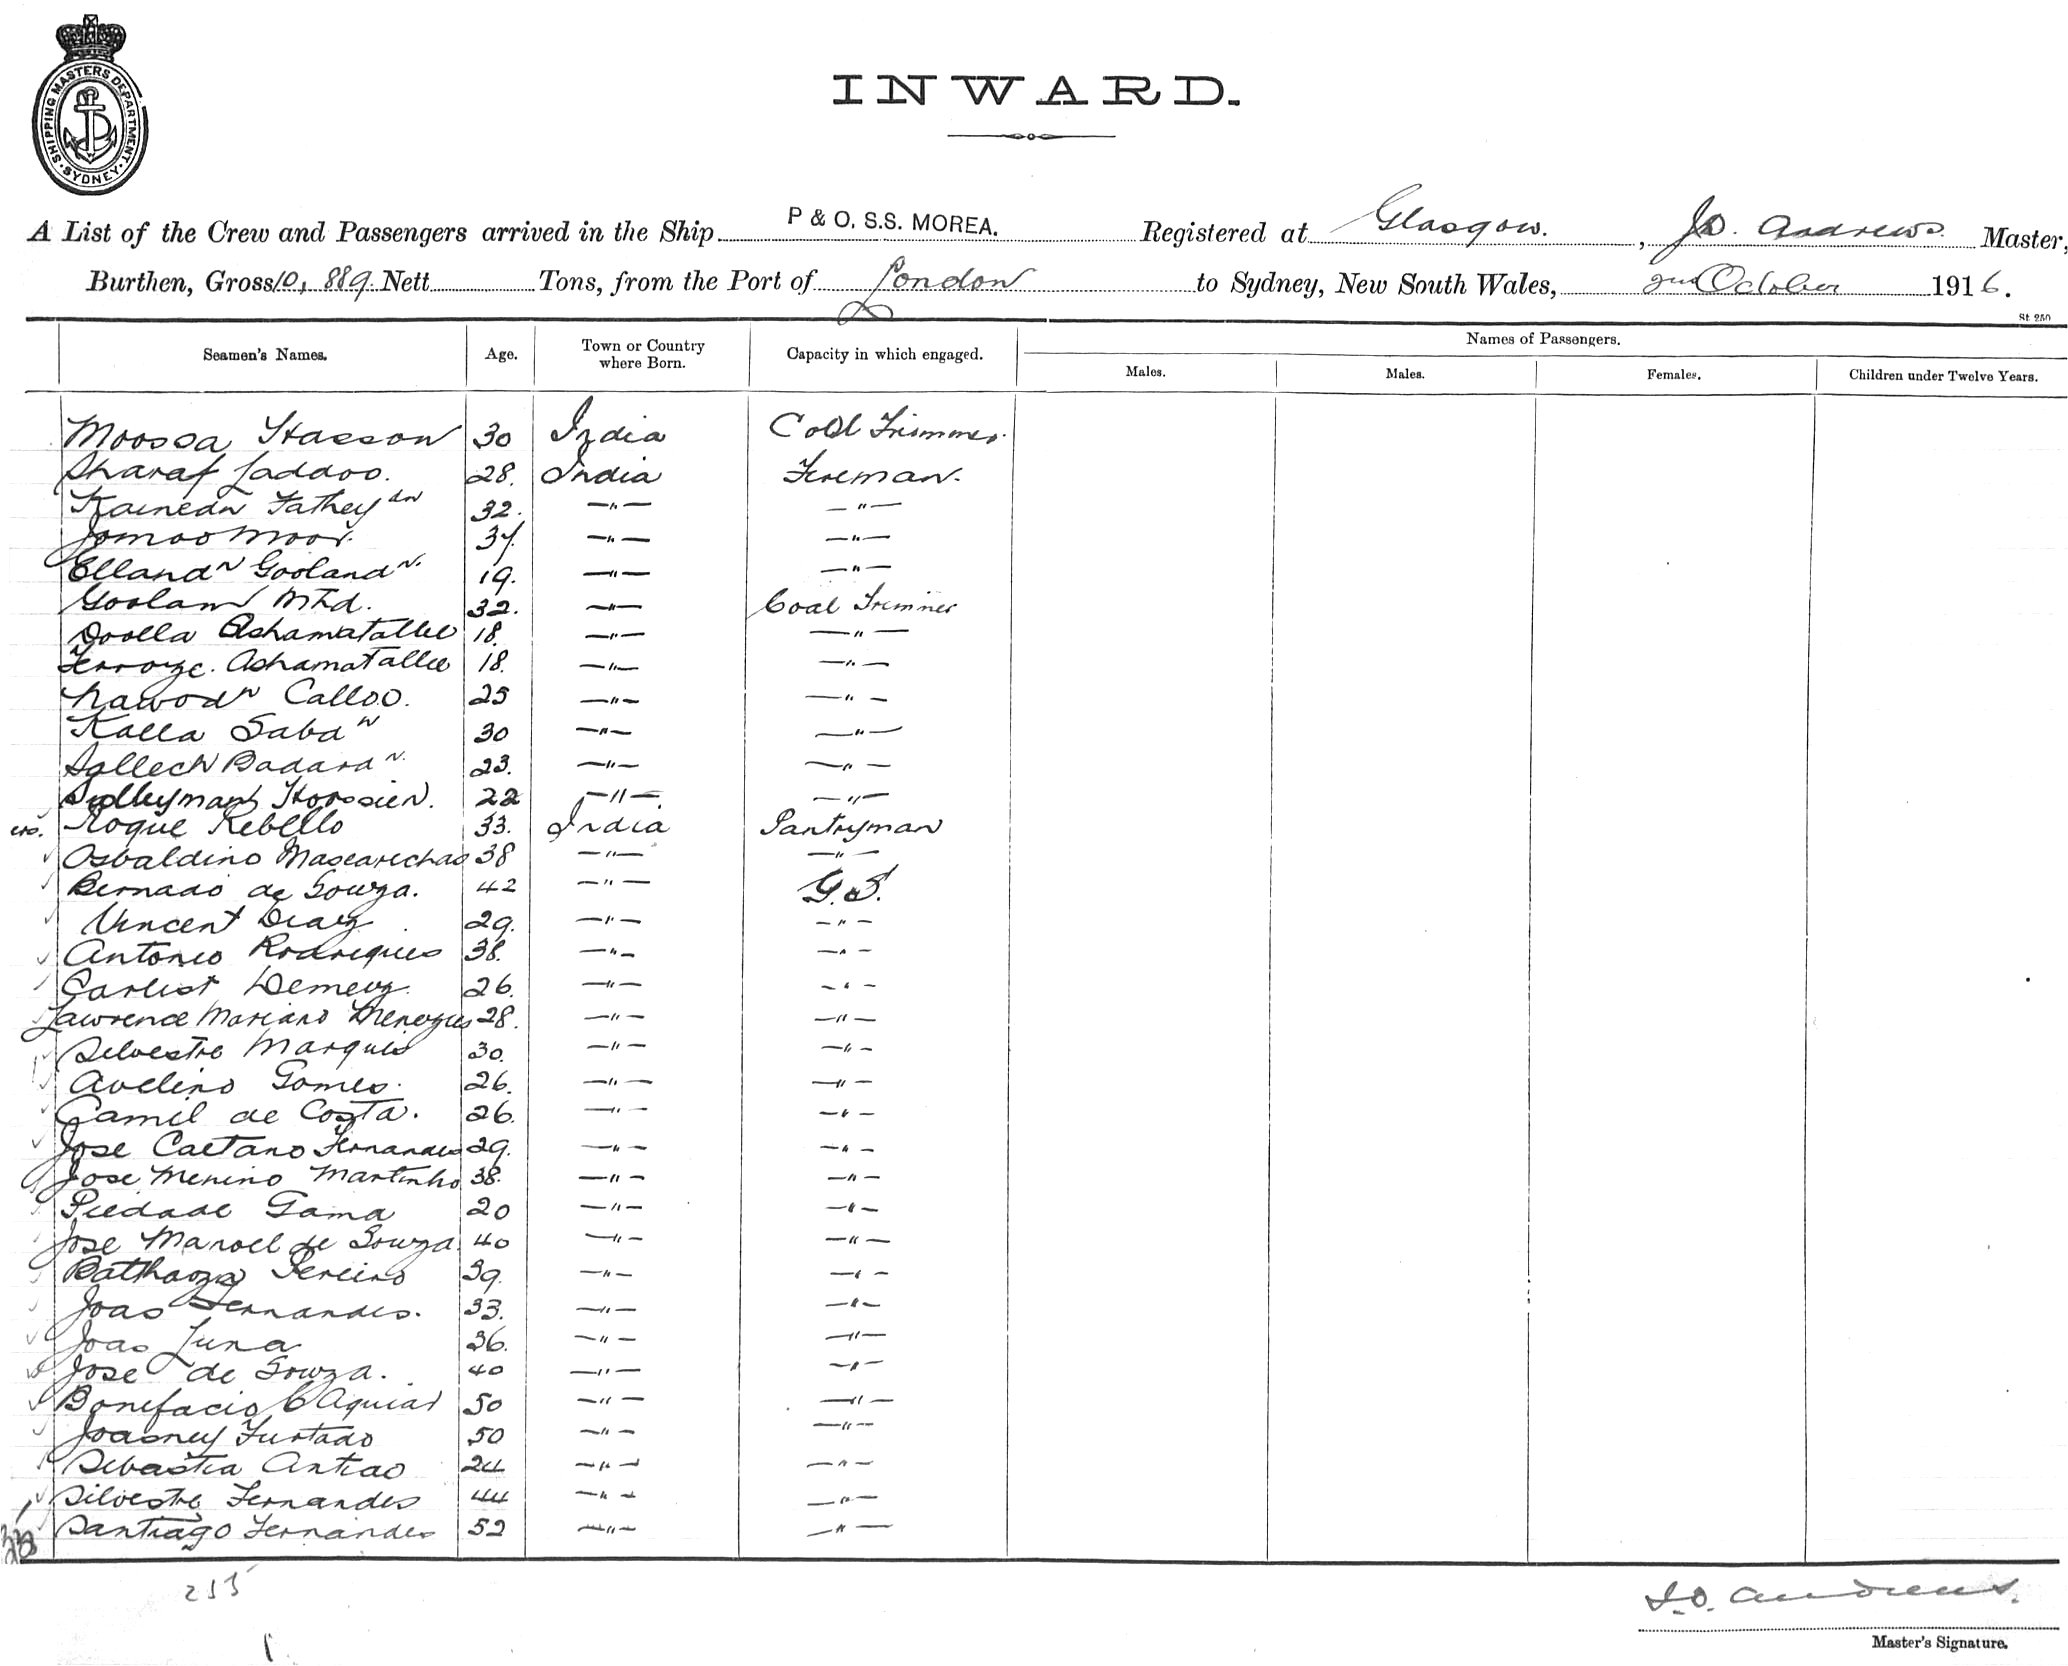 SHIPPING MASTERS DEPARTMENT · SYDNEY ·
INWARD.
A List of the Crew and Passengers arrived in the Ship P & O. S.S. MOREA. Registered at Glasgow. , Andrews. Master,
Burthen, Gross 10,889. Nett Tons, from the Port of London to Sydney, New South Wales, 2nd October 1916.
St. 250
Seamen's Names. Age. Town or Country where Born. Capacity in which engaged. Names of Passengers.
Males. Males. Females. Children under Twelve Years.
Moossa Hasson 30 India Coal Trimmer.
Sharaf Laddoo. 28. India Fireman.
Fathey dn 32. —"— —"—
Jomoo Moor. 37. —"— —"—
Elland n Gooland n. 19. —"— —"—
Goolam Mhd. 32. —"— Coal Trimmer
Doolla Ashamatallee 18. —"— —"—
Ashamatallee 18. —"— —"—
Nawod n Calloo. 25 —"— —"—
Kalla Saba n 30 —"— —"—
Badara n. 23. —"— —"—
Hoossien. 22 —"— —"—
Roque Rebello 33. India Pantryman
Osbaldino Mascarechas 38 —"— —"—
Bernado de Souza. 42 —"— G.S.
Vincent Diaz 29. —"— —"—
Antonio Rodrigues 38. —"— —"—
Carlist Demenz. 26. —"— —"—
Lawrence Mariano Menezes 28. —"— —"—
Silvestre Marques 30. —"— —"—
Avelino Gomes. 26. —"— —"—
Camil de Costa. 26. —"— —"—
Jose Caetano Fernandes 29. —"— —"—
Jose Menino Martinho 38. —"— —"—
Piedade Gama 20 —"— —"—
Jose Manoel de Souza. 40 —"— —"—
Balthaza Pereira 39. —"— —"—
Joao Fernandes. 33. —"— —"—
Joao Luna 36. —"— —"—
Jose de Souza. 40 —"— —"—
Bonifacio C Aguiar 50 —"— —"—
Furtado 50 —"— —"—
Sebastia Antao 24 —"— —"—
Silvestre Fernandes 44 —"— —"—
Santiago Fernandes 52 —"— —"—
35
235
J.D. Andrews.
Master's Signature.